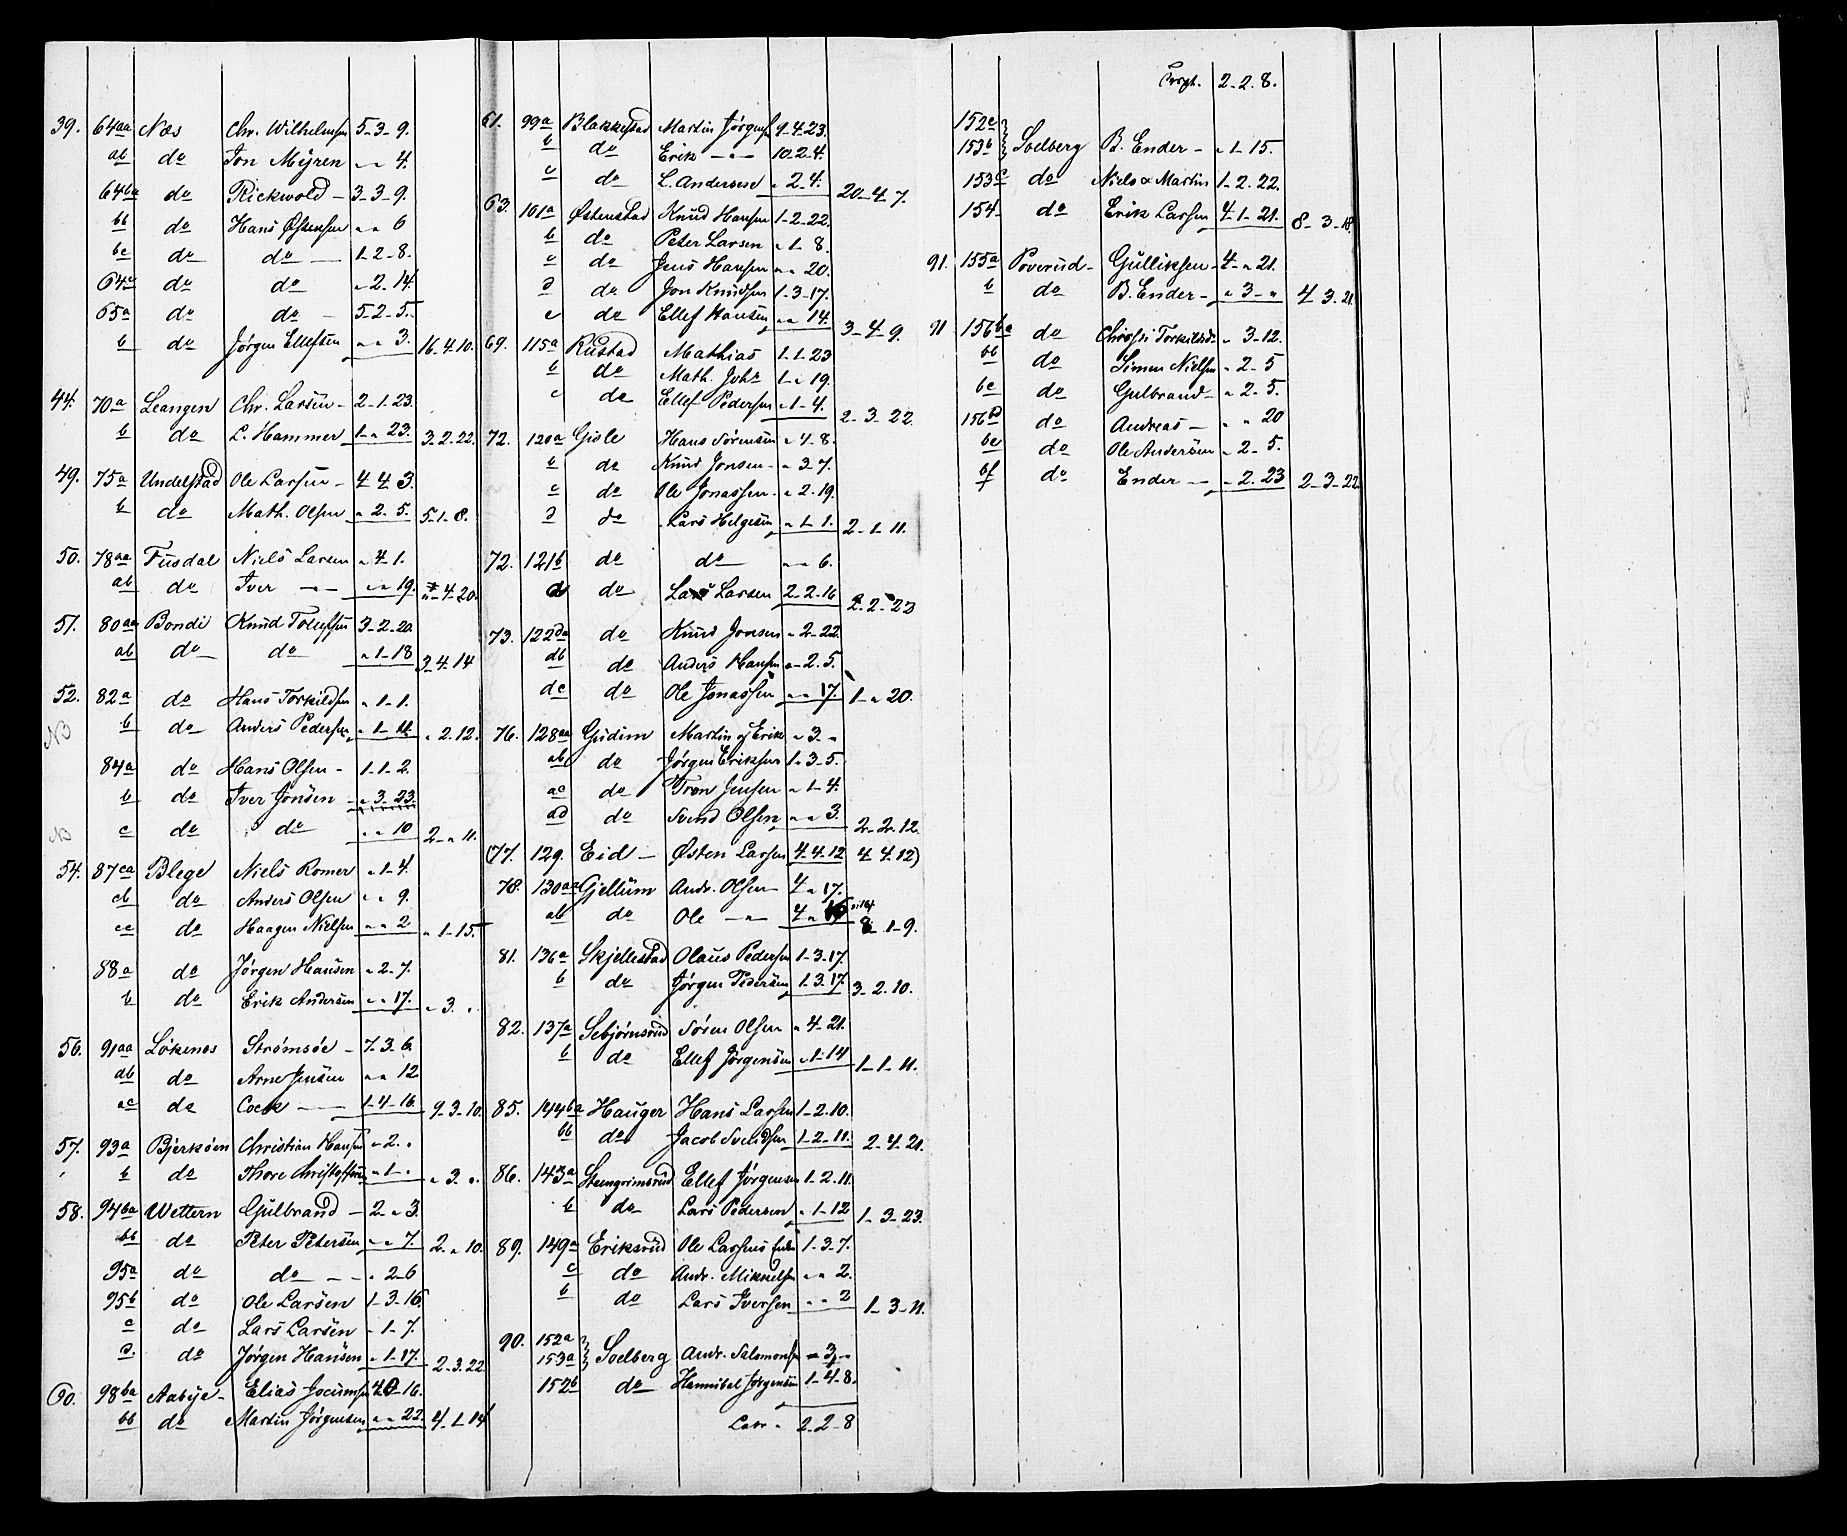 39. 64aa Næs Chr. Wilhelmsen 5-3-9.
ab do Jon Myren " - " 4.
64ba do Rickwold - 3-3-9.
bb do Hans Østensen " " 6
bc do do 1-2-8.
64c do do " 2-14.
65a do do - 5-2-5.
b do Jørgen Ellefsen " " 3. 16.4.10.
44. 70a Leangen Chr. Larsen - 2-1-23.
b do L. Hammer 1-"-23. 3.2.22.
49. 75a Undelstad Ole Larsen - 4 4 3.
b do Math. Olsen " 2-5. 5-1-8.
50. 78aa Fusdal Niels Larsen " 4-1.
ab do Iver - " - " " 19. "-4-20.
51. 80aa Bondi Knud Tollefsen 3-2-20.
ab do do " 1-18 3-4-14
52. 82a do Hans Torkildsen " 1-1.
NB b do Anders Pedersen " 1-11. " 2.12.
84a do Hans Olsen - 1-1-2.
b do Iver Jonsen - " 3-23.
NB c do do " " 10 2-"-11.
54. 87ca Blege Niels Romer " 1-4.
cb do Anders Olsen " " 9.
cc do Haagen Nielsen " " 2. " 1-15.
88a do Jørgen Hansen " 2-7.
b do Erik Andersen " " 17. " 3. "
56. 91aa Løkenes Strømsøe - 7-3-6.
ab do Arne Jensen " " 12
ac do Cock - 1-4-16. 9.3.10.
57. 93a Bjerkøen Christian Hansen " 2. "
b do Thore Christoffersen " 1- " " 3. "
58. 94ba Wettern Gulbrand - 2-"-3.
bb do Peter Petersen " " 7. 2. " 10.
95a do do - - " 2-6
95b do Ole Larsen 1-3-16.
c do Lars Larsen " 1-7.
d. do Jørgen Hansen " 1-17. 2-3.22.
60. 98ba Aabye - Elias Jocumsen 4 0-16.
bb do Martin Jørgensen " " 22. 4-1-14
61. 99a Blakkestad Martin Jørgensen 9-4.23.
b do Erik - " - 10-2-4.
c do L. Andersen " 2-4. 20-4-7.
63. 101a Østenstad Knud Hansen 1-2-22.
b do Peter Larsen " 1-8.
c do Jens Hansen " " 20.
d do Jon Knudsen 1-3-17.
e do Ellef Hansen " " 14. 3-4-9.
69. 115a Rustad Mathias 1-1-23
b do Math. Johs 1-"-19.
c do Ellef Pedersen " 1-4. 2-3-22.
72. 120a Gisle Hans Sørensen " 4-8.
b do Knud Jonsen - " 3-7.
c do Ole Jonassen - " 2-19.
d do Lars Helgesen " 1-1. 2-1-11.
72. 121b do do " " 6.
d do Lars Larsen 2-2-16 2-2-22
73. 122da do Knud Jonsen " 2-22.
db do Anders Hansen " - 2.5.
dc do Ole Jonassen " " 17. 1-"-20.
76. 128aa Gudim Martin og Erik " 3- "
ab do Jørgen Eriksen 1-3-5.
ac do Tron Jensen " 1-4.
ad do Svend Olsen " " 3. 2-2.12.
(77. 129. Eid - Østen Larsen 4-4.12 4-4.12)
78. 130aa Gjellum Andr. Olsen - 4 " 17.
ab do Ole - " - 4 " 16 8-1-9.
81. 136a Skjellestad Olaus Pedersen 1-3-17.
b do Jørgen Pedersen 1.3.17. 3-2.10.
82. 137a Sebjørnsrud Søren Olsen " 4-21.
b do Ellef Jørgensen " 1-14 1-1-11.
85. 144ba Hauger Hans Larsen 1-2-10.
bb do Jacob Svendsen 1-2-11. 2-4.21.
86. 143a Steengrimsrud Ellef Jørgensen 1-2-11.
b do Lars Pedersen " 1-12 1-3-23.
89. 149a Eriksrud Ole Larsens Enke 1-3-7.
c do Andr. Mikkelsen " " 2.
b do Lars Iversen " " 2 1-3-11.
90. 152a
153a } Soelberg Andr. Salomonsen " 3- "
152b do Hannibal Jørgensen 1-4-8.
Latr " 2-2-8
Trspt. 2-2-8.
152c
153b } Soelberg B. Ender - " 1-15.
153c do Niels & Martin 1-2-22.
154- do Erik Larsen 4-1-21. 8-3-18.
91. 155a Poverud - Gulliksen - 4-"-21.
b do B. Ender - " 3- " 4 3.21.
91 156ba do Christi Torkildsd. " 3-12.
bb do Simen Nielsen " 2-5
bc do Gulbrand - " 2-5.
156bd do Andreas - " " 20
be do Ole Andersen " 2-5.
bf do Ender - " 2-23 2-3-22.